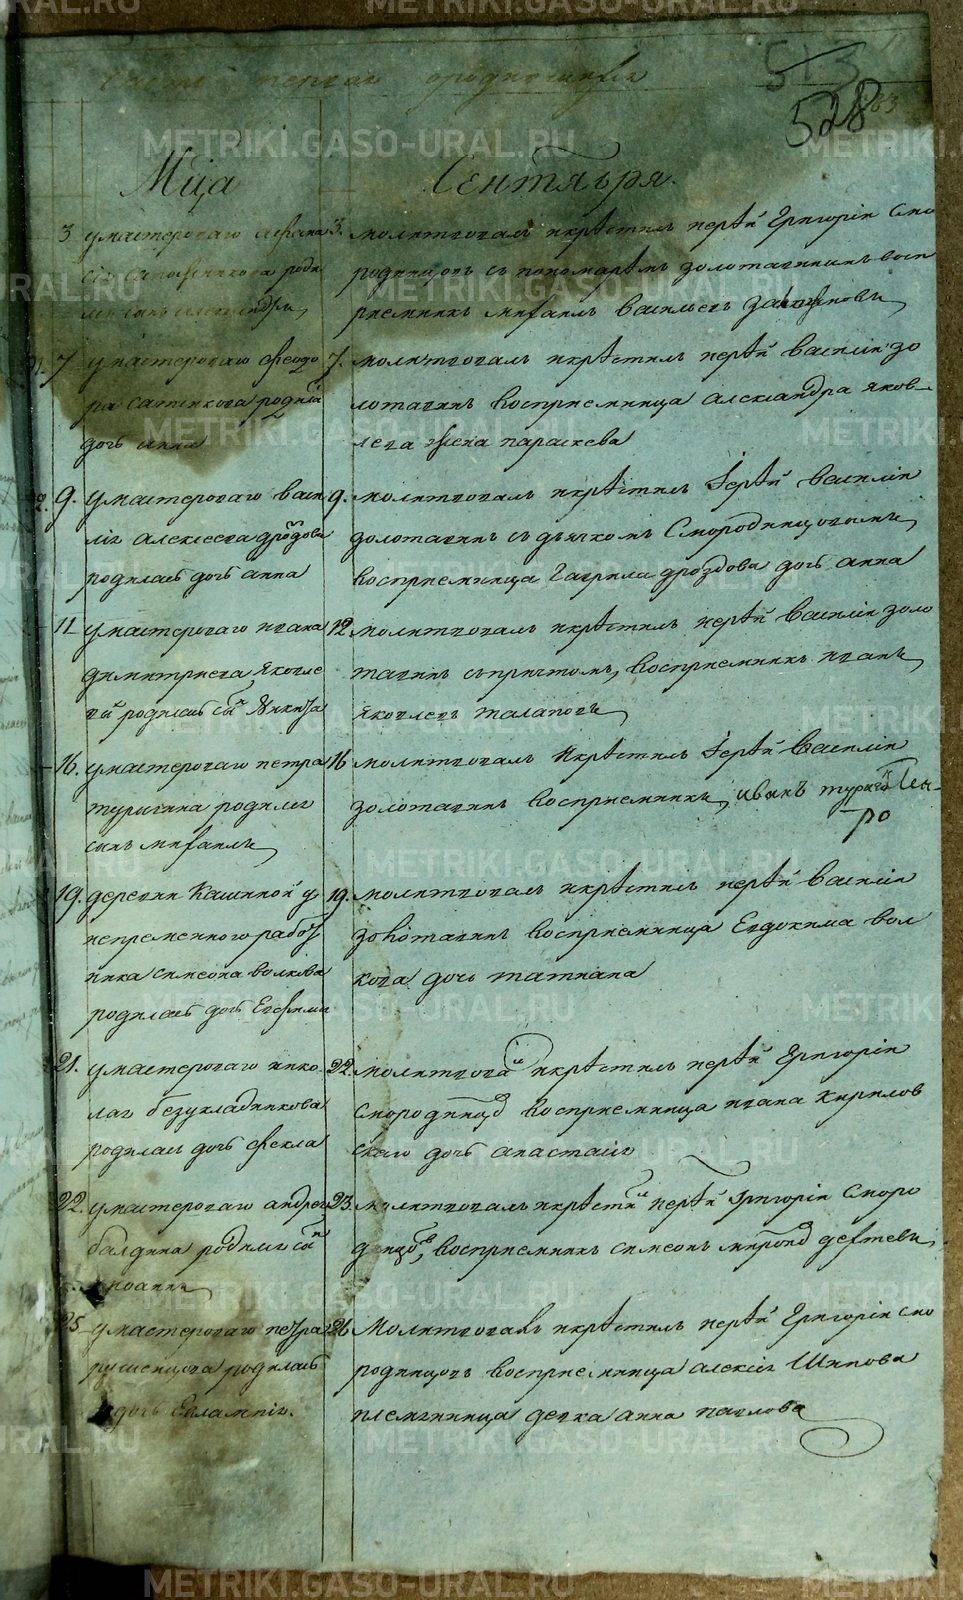 Часть первая о родившихся
513
528
Мца Сентября
3 у мастероваго Афана
сія Сапожникова роди
лся сынъ Александръ
3. молитвовалъ и крѣстилъ іерѣй Григоріи Смо
родинцовъ съ пономарѣмъ золотавинымъ восп
риемникъ михаилъ васильевъ
7 у мастероваго Феодо
ра родилась
дочь анна
7. молитвовалъ и крѣстилъ іерѣй василіи зо
лотавинъ восприемница александра яков
лева жена параскева
9. у мастероваго васи
лія алексеева дроздова
родилась дочь анна
9. молитвовалъ и крѣстилъ Іерѣй василіи
золотавинъ съ дьячкомъ Смородинцовымъ
восприемница гаврила дроздова дочь анна
11 у мастероваго ивана
димитриева яковле
ва родилась сынъ Никита
12 молитвовалъ и крѣстилъ іерѣй василіи золо
тавинъ съ причтомъ, восприемникъ иванъ
яковлевъ талаповъ
16. у мастероваго петра
турыгина родился
сынъ михаилъ
16 молитвовалъ и крѣстилъ Іерѣй василіи
золотавинъ восприемникъ, иванъ
19. деревни Кашиной у
непременного работ
ника симеона волкова
родилась дочь Евфимия
19. молитвовалъ и крѣстилъ іерѣй василіи
золотавинъ восприемница Евдокима вол
кова дочь татиана
21. у мастероваго нико
лая безукладникова
родилась дочь фекла
22. молитвовалъ и крѣстилъ іерѣй Григоріи
Смородинцовъ восприемница ивана кирилов
скаго дочь анастасія
22. у мастероваго андрея
балдина родился сынъ
иоаннъ
23. молитвовалъ и крѣстилъ іерѣй григоріи Сморо
динцовъ, восприемникъ симеонъ мироновъ дехтевъ
25 у мастероваго петра
родилась
дочь Евлампія.
26 Молитвовалъ и крѣстилъ іерѣй Григоріи смо
родинцовъ восприемница алексія Шипова
племянница девка анна павлова